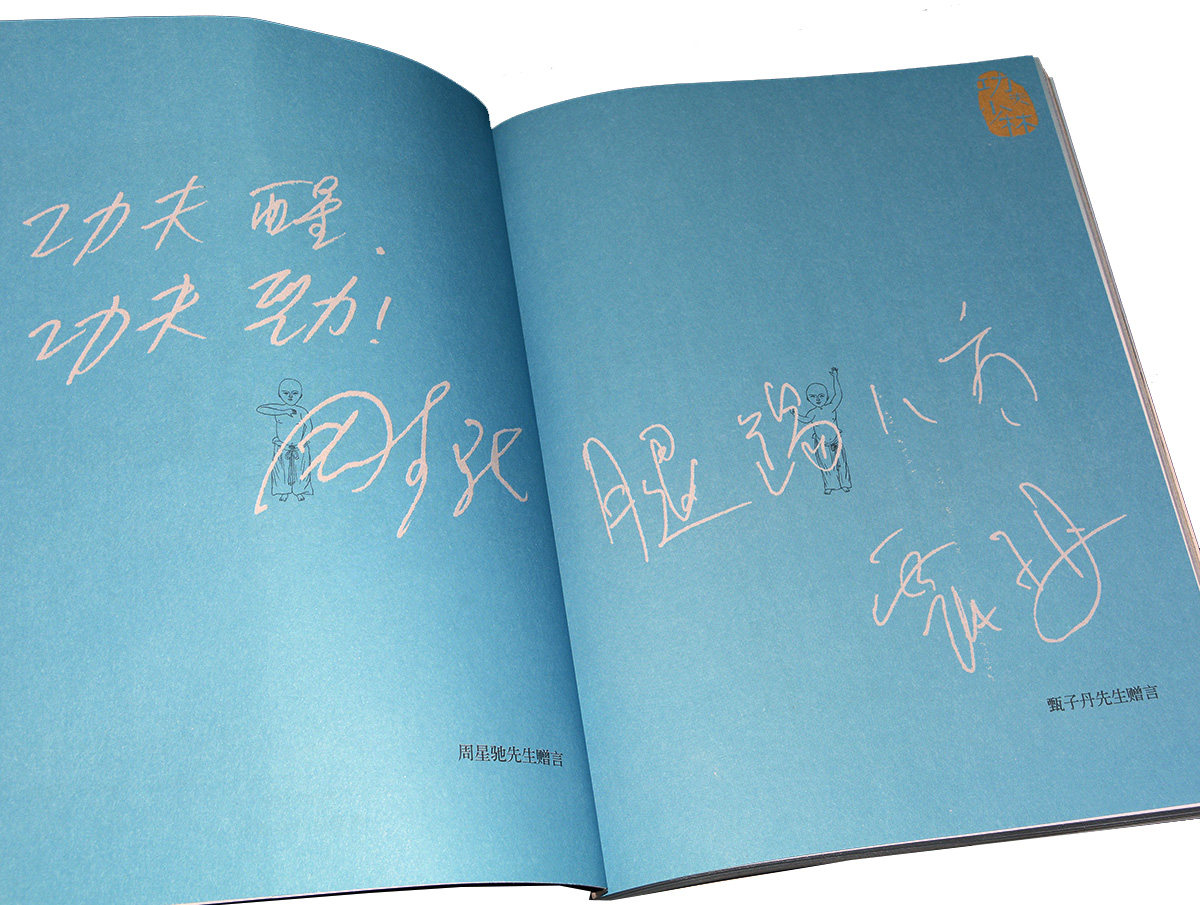 功夫醒.
功夫勁!
周星驰
周星驰先生赠言
腿踢八方
甄子丹先生赠言